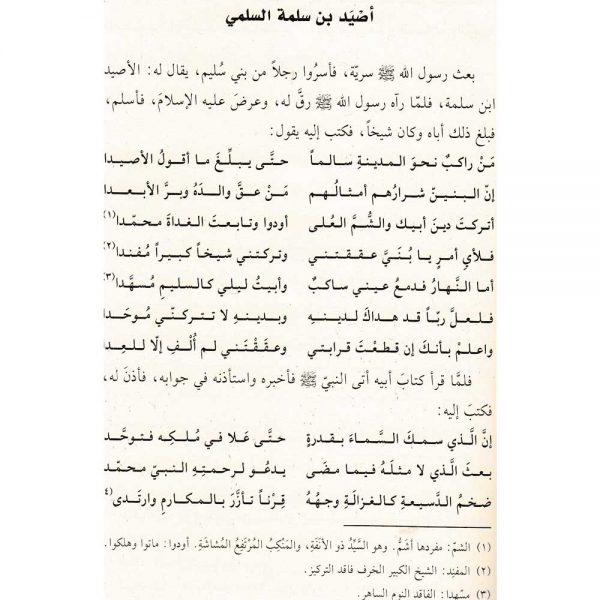 أصْيَد بن سلمة السلمي
بعث رسول الله ﷺ سريّة، فأسرُوا رجلاً من بني سُليم، يقال له: الأصيد
ابن سلمة، فلمّا رآه رسول الله ﷺ رقَّ له، وعرضَ عليه الإسلامَ، فأسلم،
فبلغ ذلك أباه وكان شيخاً، فكتب إليه يقول:
مَنْ راكبٌ نحوَ المدينةِ سالماً حتَّى يبلِّغَ ما أقولُ الأصيدا
إنّ البنينَ شرارُهم أمثالُهم مَنْ عقَّ والدَهُ وبرَّ الأبعدا
أتركتَ دينَ أبيك والشُّمَّ العُلى أودوا وتابعتَ الغداةَ محمّدا(١)
فلأي أمرٍ يا بُنَيَّ عققتني وتركتني شيخاً كبيراً مُفندا(٢)
أما النَّهارُ فدمعُ عيني ساكبٌ وأبيتُ ليلي كالسليمِ مُسهَّدا(٣)
فلعلَّ ربّاً قد هداكَ لدينِهِ وبدينِهِ لا تتركنّي مُوحَدا
واعلم بأنكَ إن قطعْتَ قرابتي وعقَقْتَني لم أُلْفِ إلّا للعِدا
فلمَّا قرأ كتابَ أبيه أتى النبيّ ﷺ فأخبره واستأذنه في جوابه، فأذنَ له،
فكتبَ إليه:
إنَّ الَّذي سمكَ السَّماءَ بقدرةٍ حتَّى عَلا في مُلكِه فتوحَّد
بعثَ الَّذي لا مثلَهُ فيما مضَى يدعُو لرحمتِهِ النبيَّ محمّد
ضخمُ الدَّسيعةِ كالغزالةِ وجهُهُ قِرْناً تأزَّرَ بالمكارمِ وارتَدى(٤
(١) الشمّ: مفردها أشمُّ. وهو السَّيِّدُ ذو الأنَفَةِ، والمَنْكِبُ المُرْتَفِعُ المُشاشَةِ. أودوا: ماتوا وهلكوا.
(٢) المفنِد: الشيخ الكبير الخرف فاقد التركيز.
(٣) مسْهدا: الفاقد النوم الساهر.